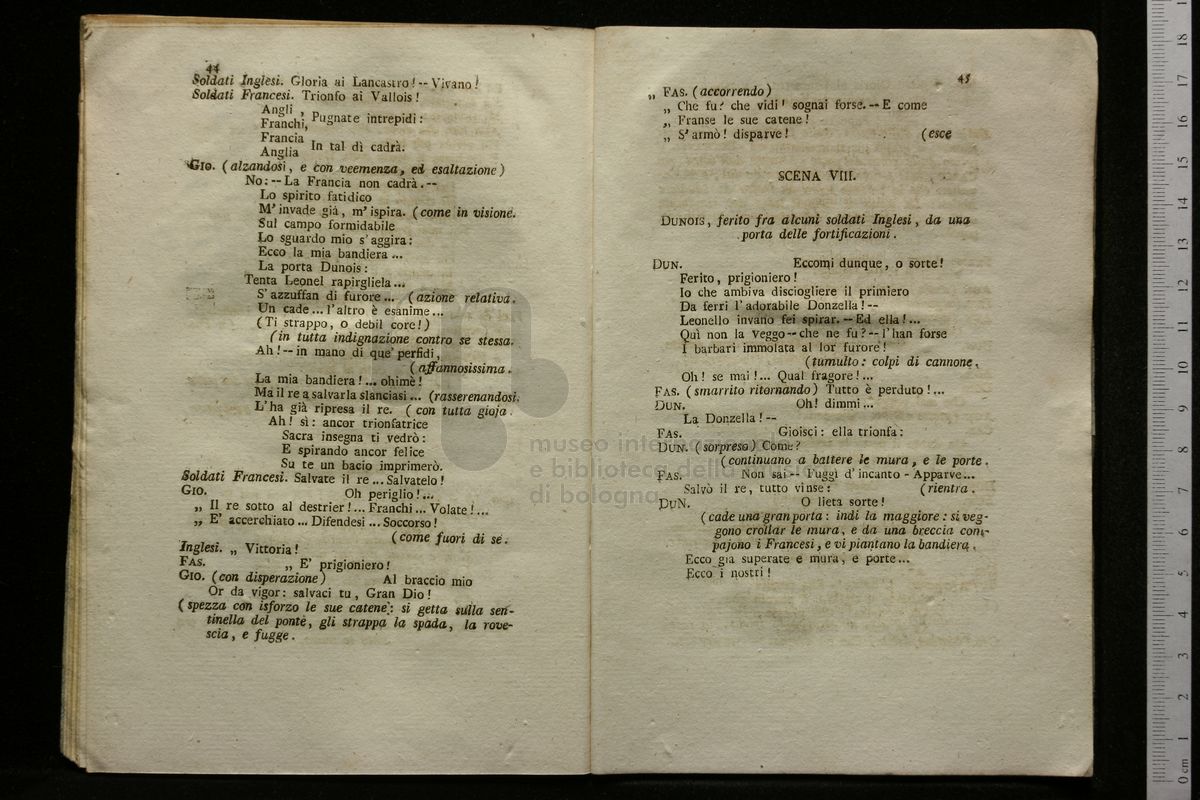 44
Soldati Inglesi. Gloria ai Lancastro! -- Vivano!
Soldati Francesi. Trionfo ai Vallois!
Angli ,
Franchi, Pugnate intrepidi:
Francia
Anglia In tal dì cadrà.
GIO. (alzandosi, e con veemenza, ed esaltazione)
No: -- La Francia non cadrà. --
Lo spirito fatidico
M'invade già, m'ispira. (come in visione.
Sul campo formidabile
Lo sguardo mio s'aggira:
Ecco la mia bandiera ...
La porta Dunois:
Tenta Leonel rapirgliela ...
S'azzuffan di furore ... (azione relativa.
Un cade ... l'altro è esanime ...
(Ti strappo, o debil core!)
(in tutta indignazione contro se stessa.
Ah! -- in mano di que' perfidi,
(affannosissima.
La mia bandiera! ... ohimè!
Ma il re a salvarla slanciasi ... (rasserenandosi.
L'ha già ripresa il re. (con tutta gioja.
Ah! sì: ancor trionfatrice
Sacra insegna ti vedrò:
E spirando ancor felice
Su te un bacio imprimerò.
Soldati Francesi. Salvate il re ... Salvatelo!
GIO. Oh periglio! ...
„ Il re sotto al destrier! ... Franchi ... Volate! ...
„ E' accerchiato ... Difendesi ... Soccorso!
(come fuori di se.
Inglesi. „ Vittoria!
FAS. „ E' prigioniero!
GIO. (con disperazione) Al braccio mio
Or da vigor: salvaci tu, Gran Dio!
(spezza con isforzo le sue catene: si getta sulla sen-
tinella del ponte, gli strappa la spada, la rove-
scia, e fugge.
45
„ FAS. (accorrendo)
„ Che fu? che vidi! sognai forse. -- E come
„ Franse le sue catene!
„ S'armò! disparve! (esce
SCENA VIII.
DUNOIS, ferito fra alcuni soldati Inglesi, da una
porta delle fortificazioni.
DUN. Eccomi dunque, o sorte!
Ferito, prigioniero!
Io che ambiva disciogliere il primiero
Da ferri l'adorabile Donzella! --
Leonello invano fei spirar. -- Ed ella! ...
Quì non la veggo -- che ne fu? -- l'han forse
I barbari immolata al lor furore!
(tumulto: colpi di cannone.
Oh! se mai! ... Qual fragore! ...
FAS. (smarrito ritornando) Tutto è perduto! ...
DUN. Oh! dimmi ...
La Donzella! --
FAS. Gioisci: ella trionfa:
DUN. (sorpreso) Come?
(continuano a battere le mura, e le porte.
FAS. Non sai -- Fuggì d'incanto - Apparve ...
Salvò il re, tutto vinse: (rientra.
DUN. O lieta sorte!
(cade una gran porta: indi la maggiore: si veg-
gono crollar le mura, e da una breccia com-
pajono i Francesi, e vi piantano la bandiera.
Ecco già superate e mura, e porte ...
Ecco i nostri!
museo
e biblioteca della
di bologna
0 cm 1 2 3 4 5 6 7 8 9 10 11 12 13 14 15 16 17 18